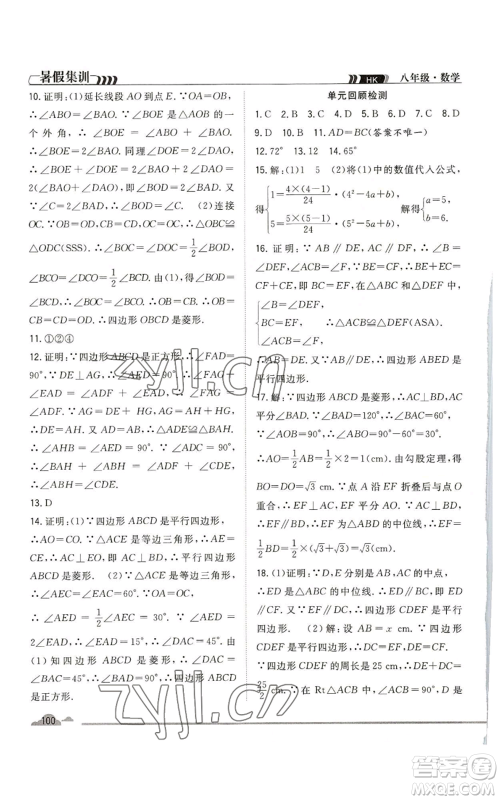 暑假集训
HK
八年级·数学
10. 证明:(1)延长线段 AO 到点 E. ∵OA=OB,
∴∠ABO=∠BAO. 又∵∠BOE 是△ABO 的一
个外角,∴∠BOE=∠ABO+∠BAO=2∠BAO,
∴∠BOE=2∠BAO. 同理∠DOE=2∠DAO,
∴∠BOE+∠DOE=2∠BAO+2∠DAO=
2(∠BAO+∠DAO),∴∠BOD=2∠BAD. 又
∵∠C=2∠BAD,∴∠BOD=∠C. (2)连接
OC. ∵OB=OD,CB=CD,OC=OC,∴△OBC≌
△ODC(SSS). ∴∠BOC=∠DOC,∠BCO=
∠DCO. ∵∠BOD=∠BOC+∠DOC,∠BCD=
∠BCO+∠DCO,∴∠BOC=1/2∠BOD,
∠BCO=1/2∠BCD. 由(1),得∠BOD=∠BCD,
∴∠BOC=∠BCO. ∴OB=CB. ∴OB=BC=
CD=DO. ∴四边形 OBCD 是菱形.
11. ①②④
12. 证明:∵四边形 ABCD 是正方形,∴∠FAD=
90°,∴∠EAD=∠ADF+∠AED=90°,
∴∠EAD=∠ADF. ∵AF=DE,∴△AFD≌
△DEA. ∴AE=DF. ∵AG=DE+HG,AG=
AH+HG,∴DE=AH. 又∵AD=AB,∠ADE=
∠DAF=90°,∴△ADE≌△BAH. ∴∠EAD=
∠ABH. ∵∠EAD+∠BAH=90°,∴∠ABH+
∠BAH=90°. ∴∠AHB=90°. ∴AE⊥BH.
13. D
14. 证明:(1)∵四边形 ABCD 是平行四边形,
∴AO=CO. ∵△ACE 是等边三角形,
∴EO⊥AC,即 BD⊥AC. ∴平行四边形 ABCD
是菱形. (2)∵△ACE 是等边三角形,
∴∠EAC=60°. 由(1)知,EO⊥AC,OA=OC,
∴∠AEO=1/2∠AEC=30°. ∵∠AED=
2∠EAD,∴∠EAD=15°,∴∠ADO=
∠EAD+∠AED=45°,∴∠DAO=45°. 由
(1)知四边形 ABCD 是菱形,∴∠DAB=
2∠DAO=90°,∴∠DAB=90°. ∴四边形 ABCD
是正方形.
单元回顾检测
1. C 2. B 3. B 4. C 5. C 6. D 7. C 8. D
9. D 10. D 11. AD=BC(答案不唯一)
12. 72° 13. 12 14. 65°
15. 解:(1)1 5 (2)将(1)中的数值代入公式,
得{1=4×(4-1)/24·(4²-4a+b), 5=5×(5-1)/24·(5²-5a+b), 解得{a=5, b=6.
16. 证明:∵AB∥DE,∴∠B=∠DEF. ∵AC∥
DF,∴∠ACB=∠F. ∵BE=CF,∴BE+EC=
CF+EC,即 BC=EF. 在△ABC 和△DEF 中,
{∠B=∠DEF, BC=EF, ∠ACB=∠F, ∴△ABC≌△DEF(ASA).
∴AC=DF. ∵AC∥DF,∴四边形 ACFD 是
平行四边形.
17. 解:∵四边形 ABCD 是菱形,∴AC⊥BD,AC 平
分∠BAD. ∵∠BAD=120°,∴∠BAC=60°.
∵∠AOB=90°,∴∠ABO=90°-60°=30°.
∴AO=1/2AB=1/2×2=1(cm). 由勾股定理,得
BO=DO=√3 cm. ∵点 A 沿 EF 折叠后与点 O
重合,∴EF⊥AC,EF 平分 AO. ∵AC⊥BD,
∴EF∥BD,∴EF 为△ABD 的中位线,
∴EF=1/2BD=1/2×(√3+√3)=√3(cm).
18. (1)证明:∵D,E 分别是 AB,AC 的中点,
∴DE 为△ABC 的中位线,∴DE∥BC,即
DE∥CF. ∵EF∥DC,∴四边形 CDEF 是平
行四边形. (2)解:∵四边形 CDEF 是平行四
边形,∴DC=EF,DE=CF. ∵DE 为△ABC
的中位线,∴BC=2DE. ∵四边形 CDEF 是平行四
边形. ∵四边形 CDEF 的周长是 25 cm,∴DC+DE=
25/2 cm. ∵在 Rt△ABC 中,∠ACB=90°,D
100
zyjl.cn
zyjl.cn